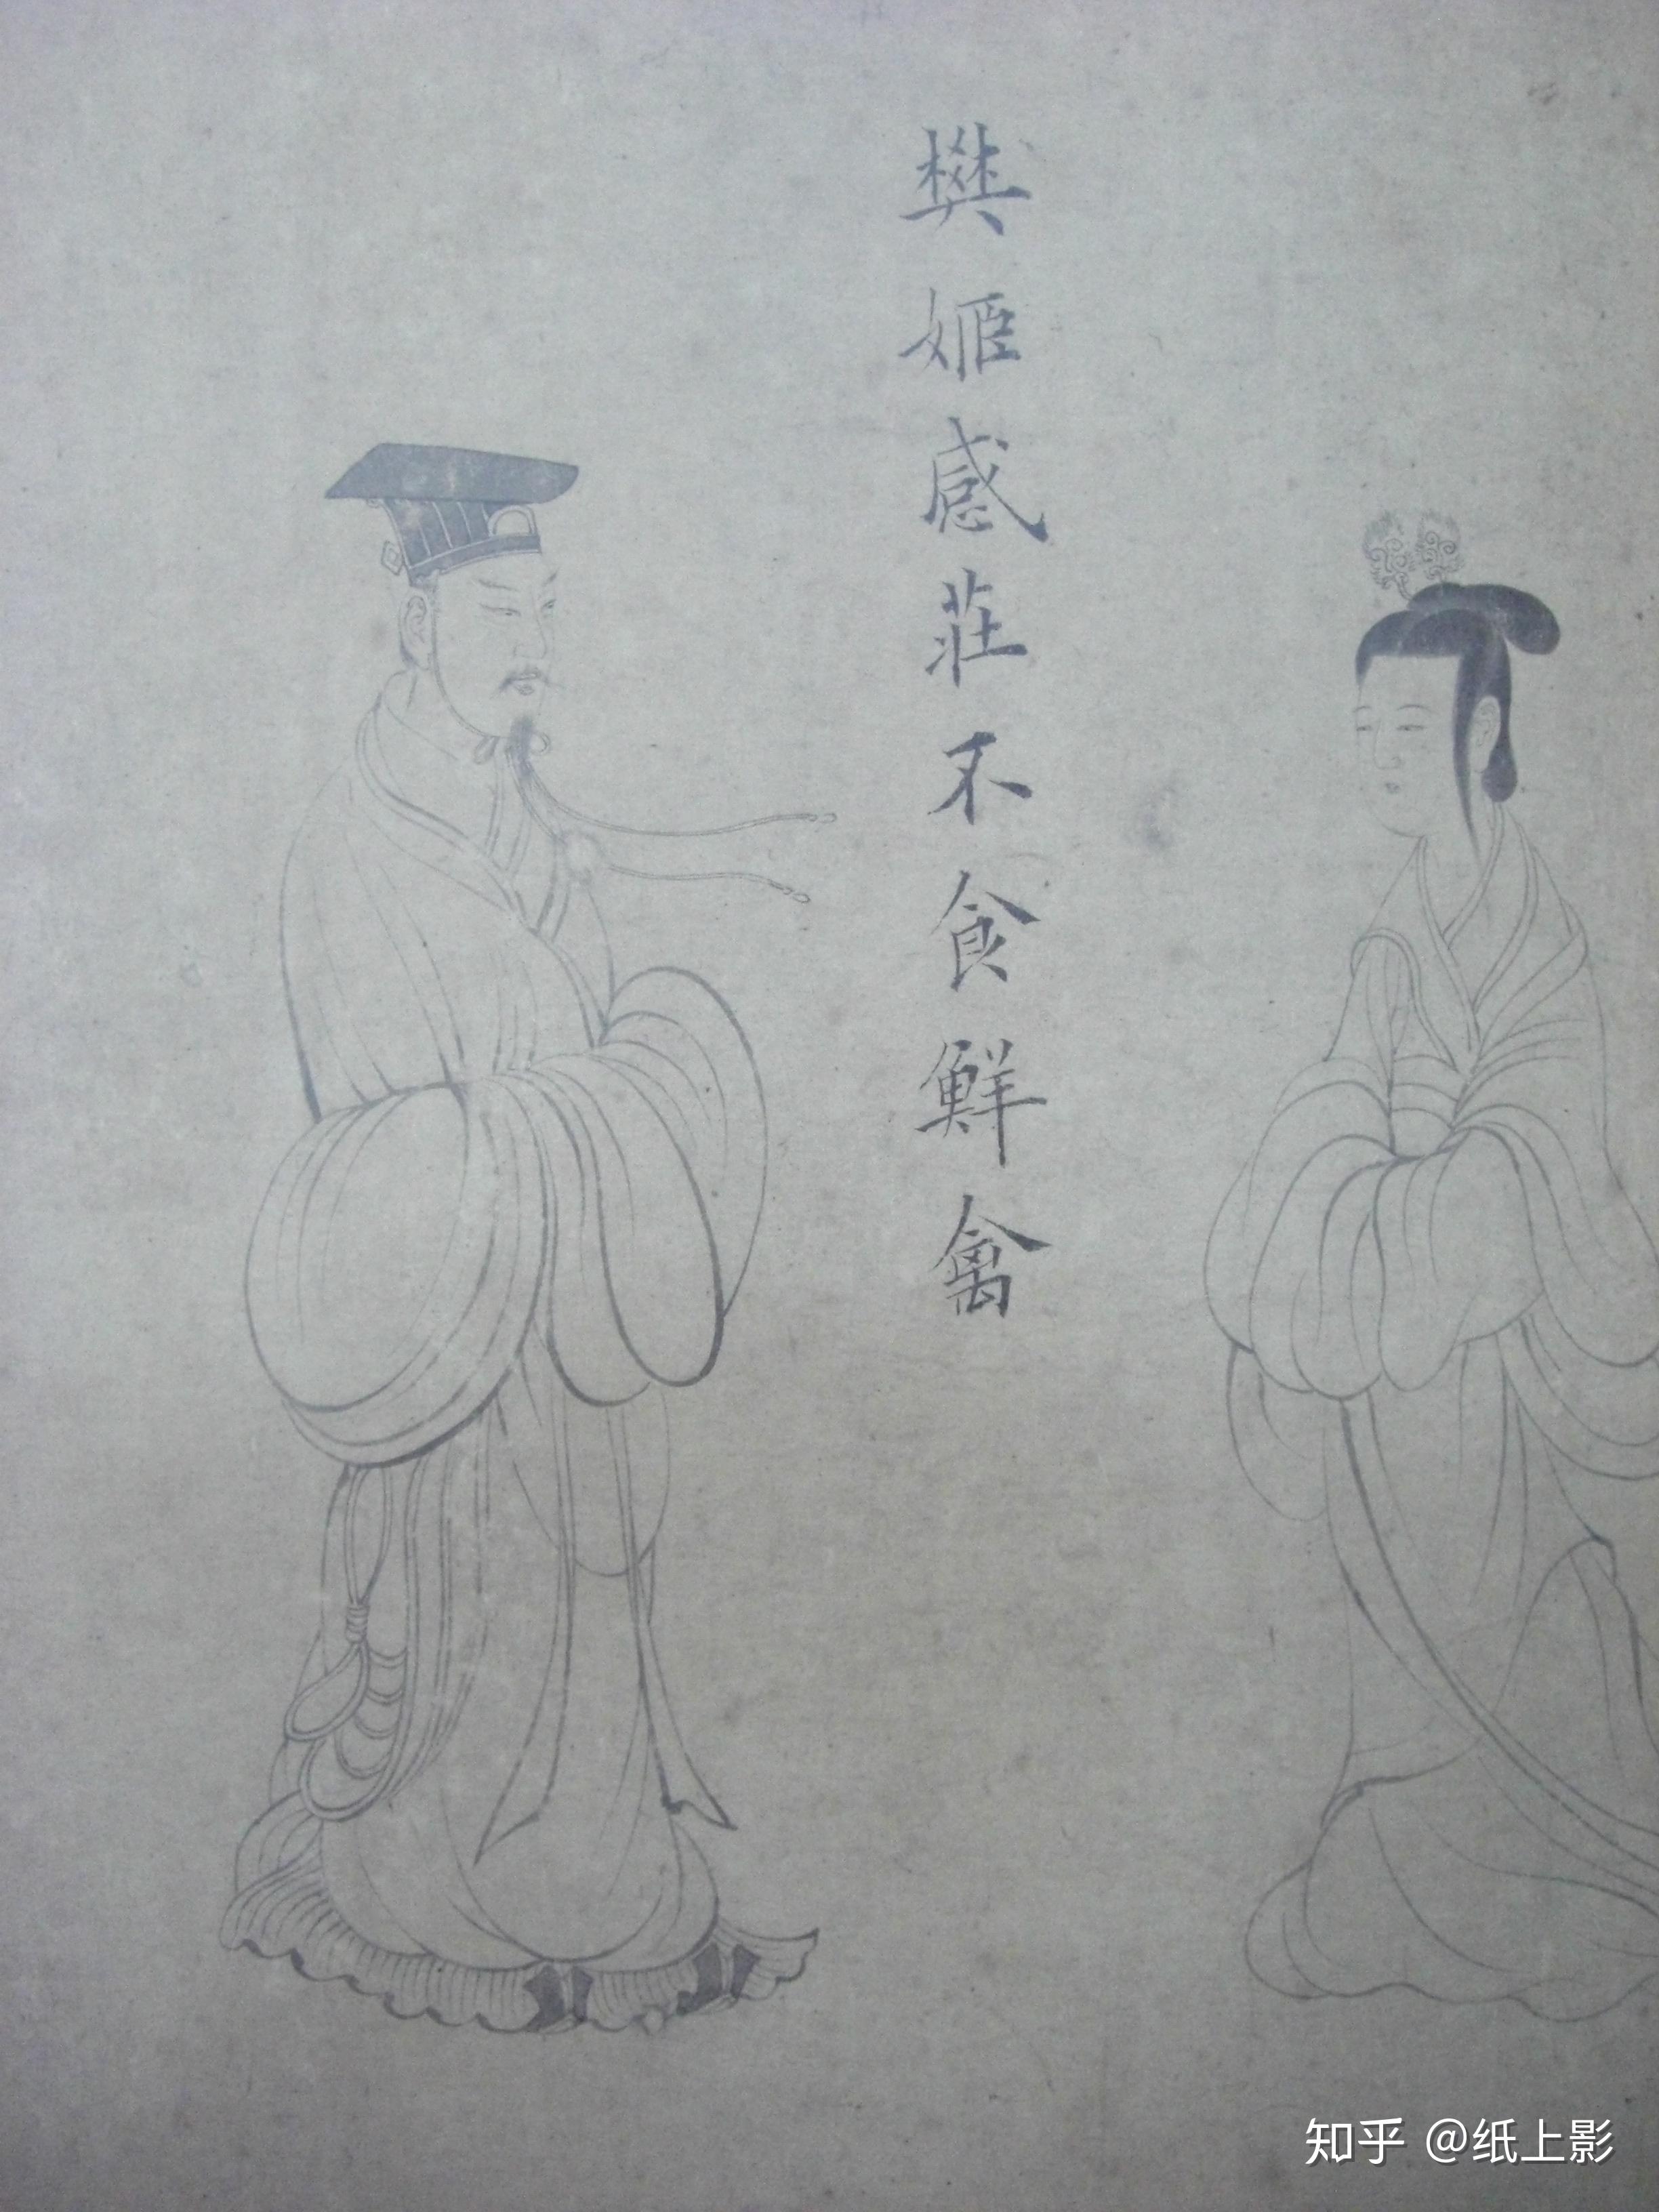 樊姬感莊不食鮮禽
知乎 @纸上影